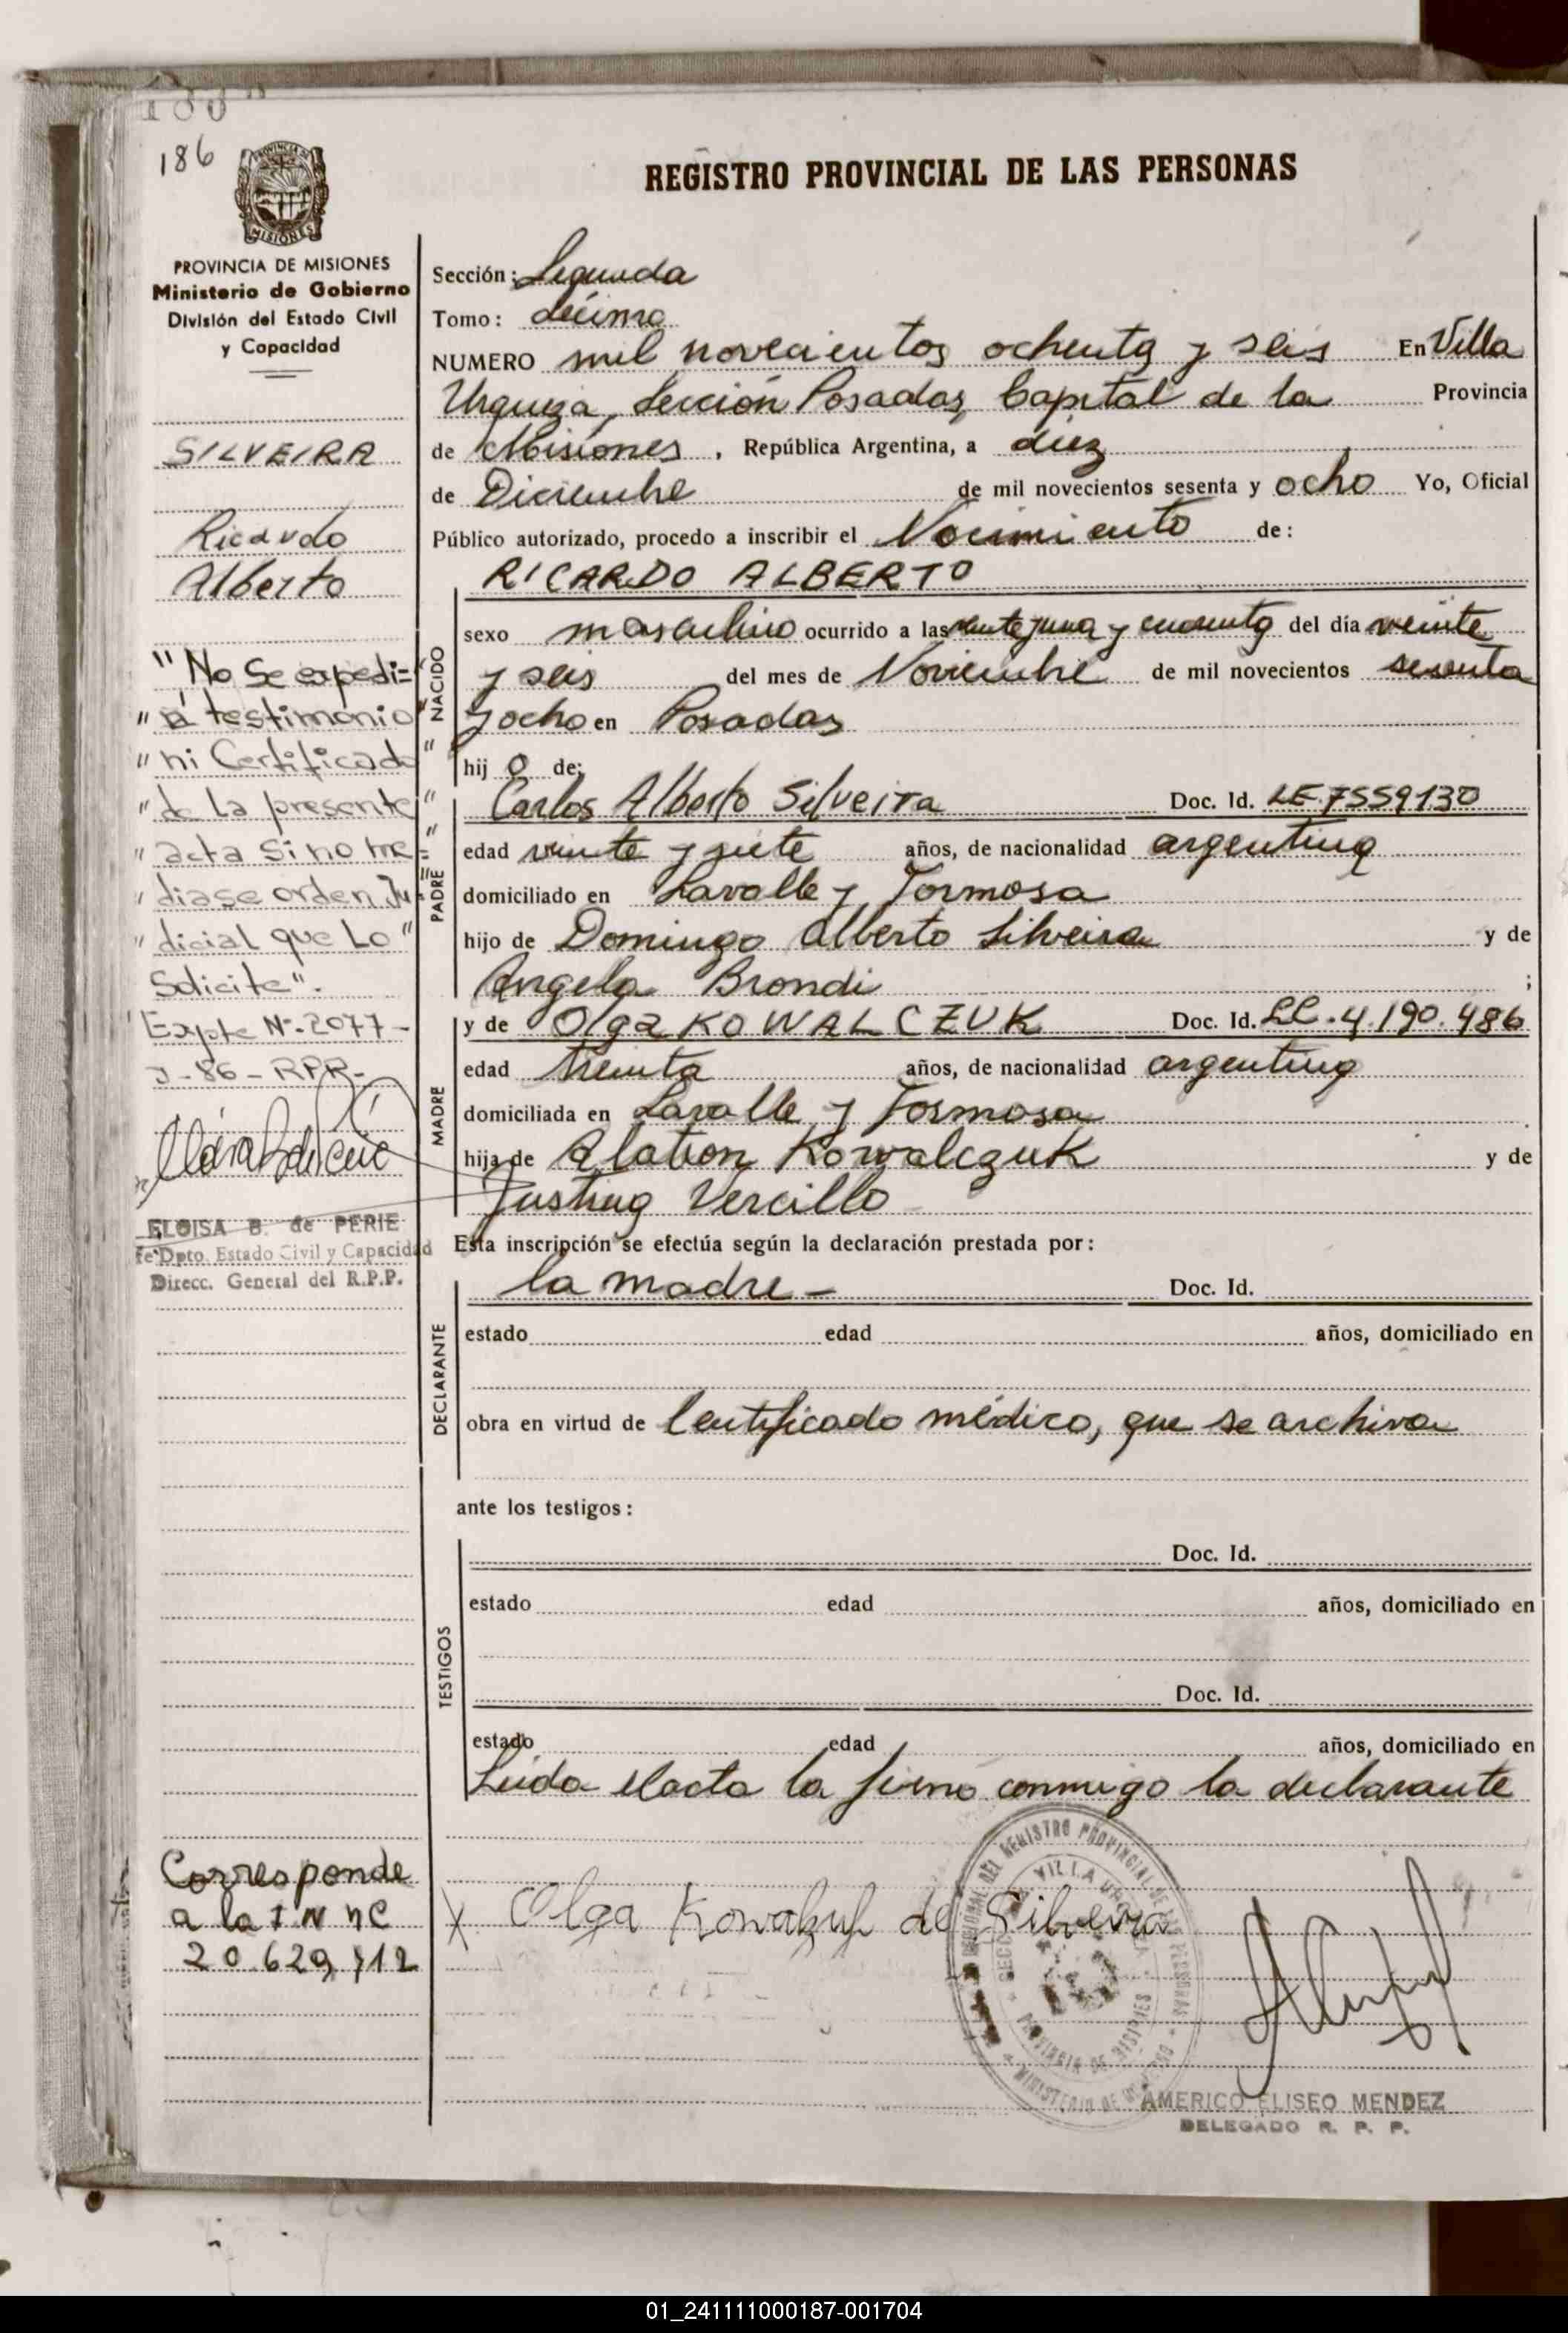 186
PROVINCIA DE MISIONES
Ministerio de Gobierno
División del Estado Civil
y Capacidad
SILVEIRA
Ricardo
Alberto
"No Se expedi=
"á testimonio"
"ni Certificado"
"de la presente"
"acta si no me="
"diase orden Ju="
"dicial que Lo"
Solicite".
Expte Nº-2077-
J-86-RPR-
ELOISA B. de PERIE
fe Dpto. Estado Civil y Capacidad
Direcc. General del R.P.P.
Corresponde
a la
20.629.712
REGISTRO PROVINCIAL DE LAS PERSONAS
Sección: Segunda
Tomo: décimo
NUMERO mil novecientos ochenta y seis En Villa
Urquiza, Sección Posadas, Capital de la Provincia
de Misiones, República Argentina, a diez
de Diciembre de mil novecientos sesenta y ocho Yo, Oficial
Público autorizado, procedo a inscribir el Nacimiento de:
RICARDO ALBERTO
NACIDO
sexo masculino ocurrido a las veinte y una y cuarenta del día veinte
y seis del mes de Noviembre de mil novecientos sesenta
y ocho en Posadas
hijo de:
PADRE
Carlos Alberto Silveira Doc. Id. LE.7559130
edad veinte y siete años, de nacionalidad argentina
domiciliado en Lavalle y Formosa
hijo de Domingo Alberto Silveira y de
Angela Brondi ;
MADRE
y de Olga KOWALCZUK Doc. Id. LC.4.190.486
edad treinta años, de nacionalidad argentina
domiciliada en Lavalle y Formosa
hija de Kowalczuk y de
Justina Vercillo
Esta inscripción se efectúa según la declaración prestada por:
DECLARANTE
la madre- Doc. Id.
estado edad años, domiciliado en
obra en virtud de Certificado médico, que se archiva
ante los testigos:
TESTIGOS
Doc. Id.
estado edad años, domiciliado en
Doc. Id.
estado edad años, domiciliado en
Leída el acta la firmó conmigo la declarante
X Olga Kowalczuk de Silveira
AMERICO ELISEO MENDEZ
DELEGADO R. P. P.
01_241111000187-001704